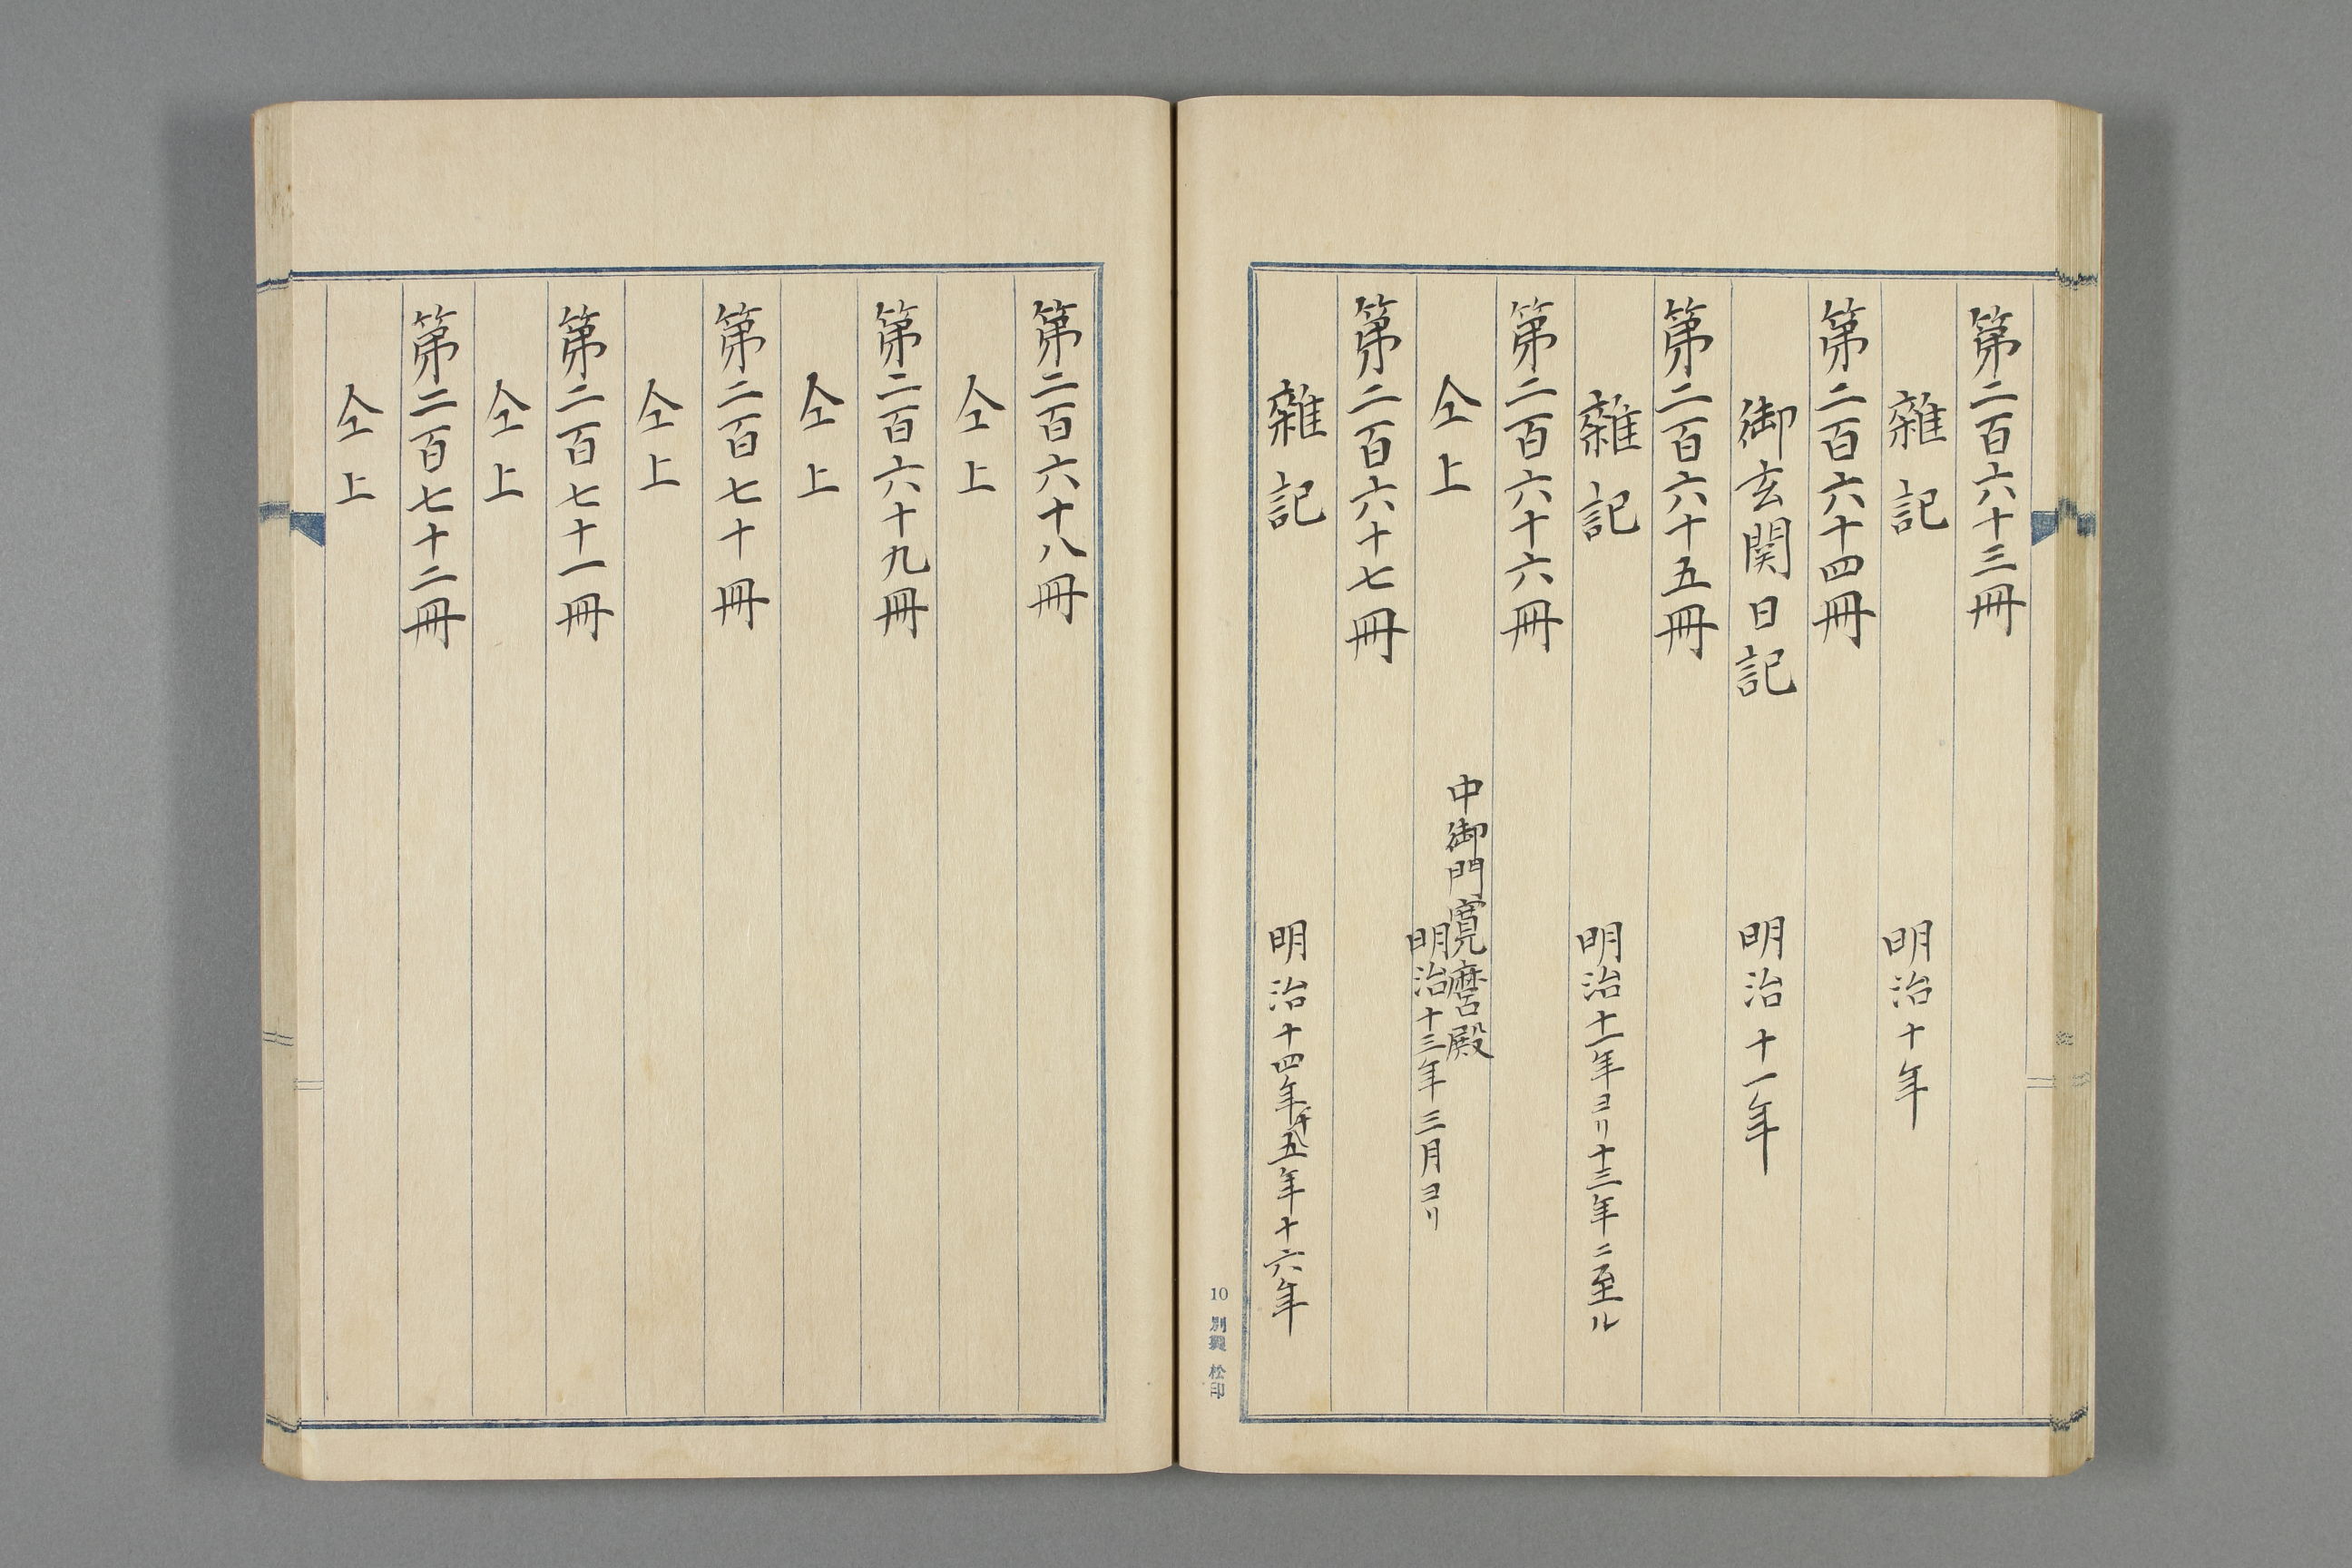 第二百六十三冊
雜記 明治十年
第二百六十四冊
御玄関日記 明治十一年
第二百六十五冊
雜記 明治十一年ヨリ十三年ニ至ル
第二百六十六冊
中御門寛麿殿
仝上 明治十三年三月ヨリ
第二百六十七冊
雜記 明治十四年十五年十六年
10 別製 松印
第二百六十八冊
仝上
第二百六十九冊
仝上
第二百七十冊
仝上
第二百七十一冊
仝上
第二百七十二冊
仝上